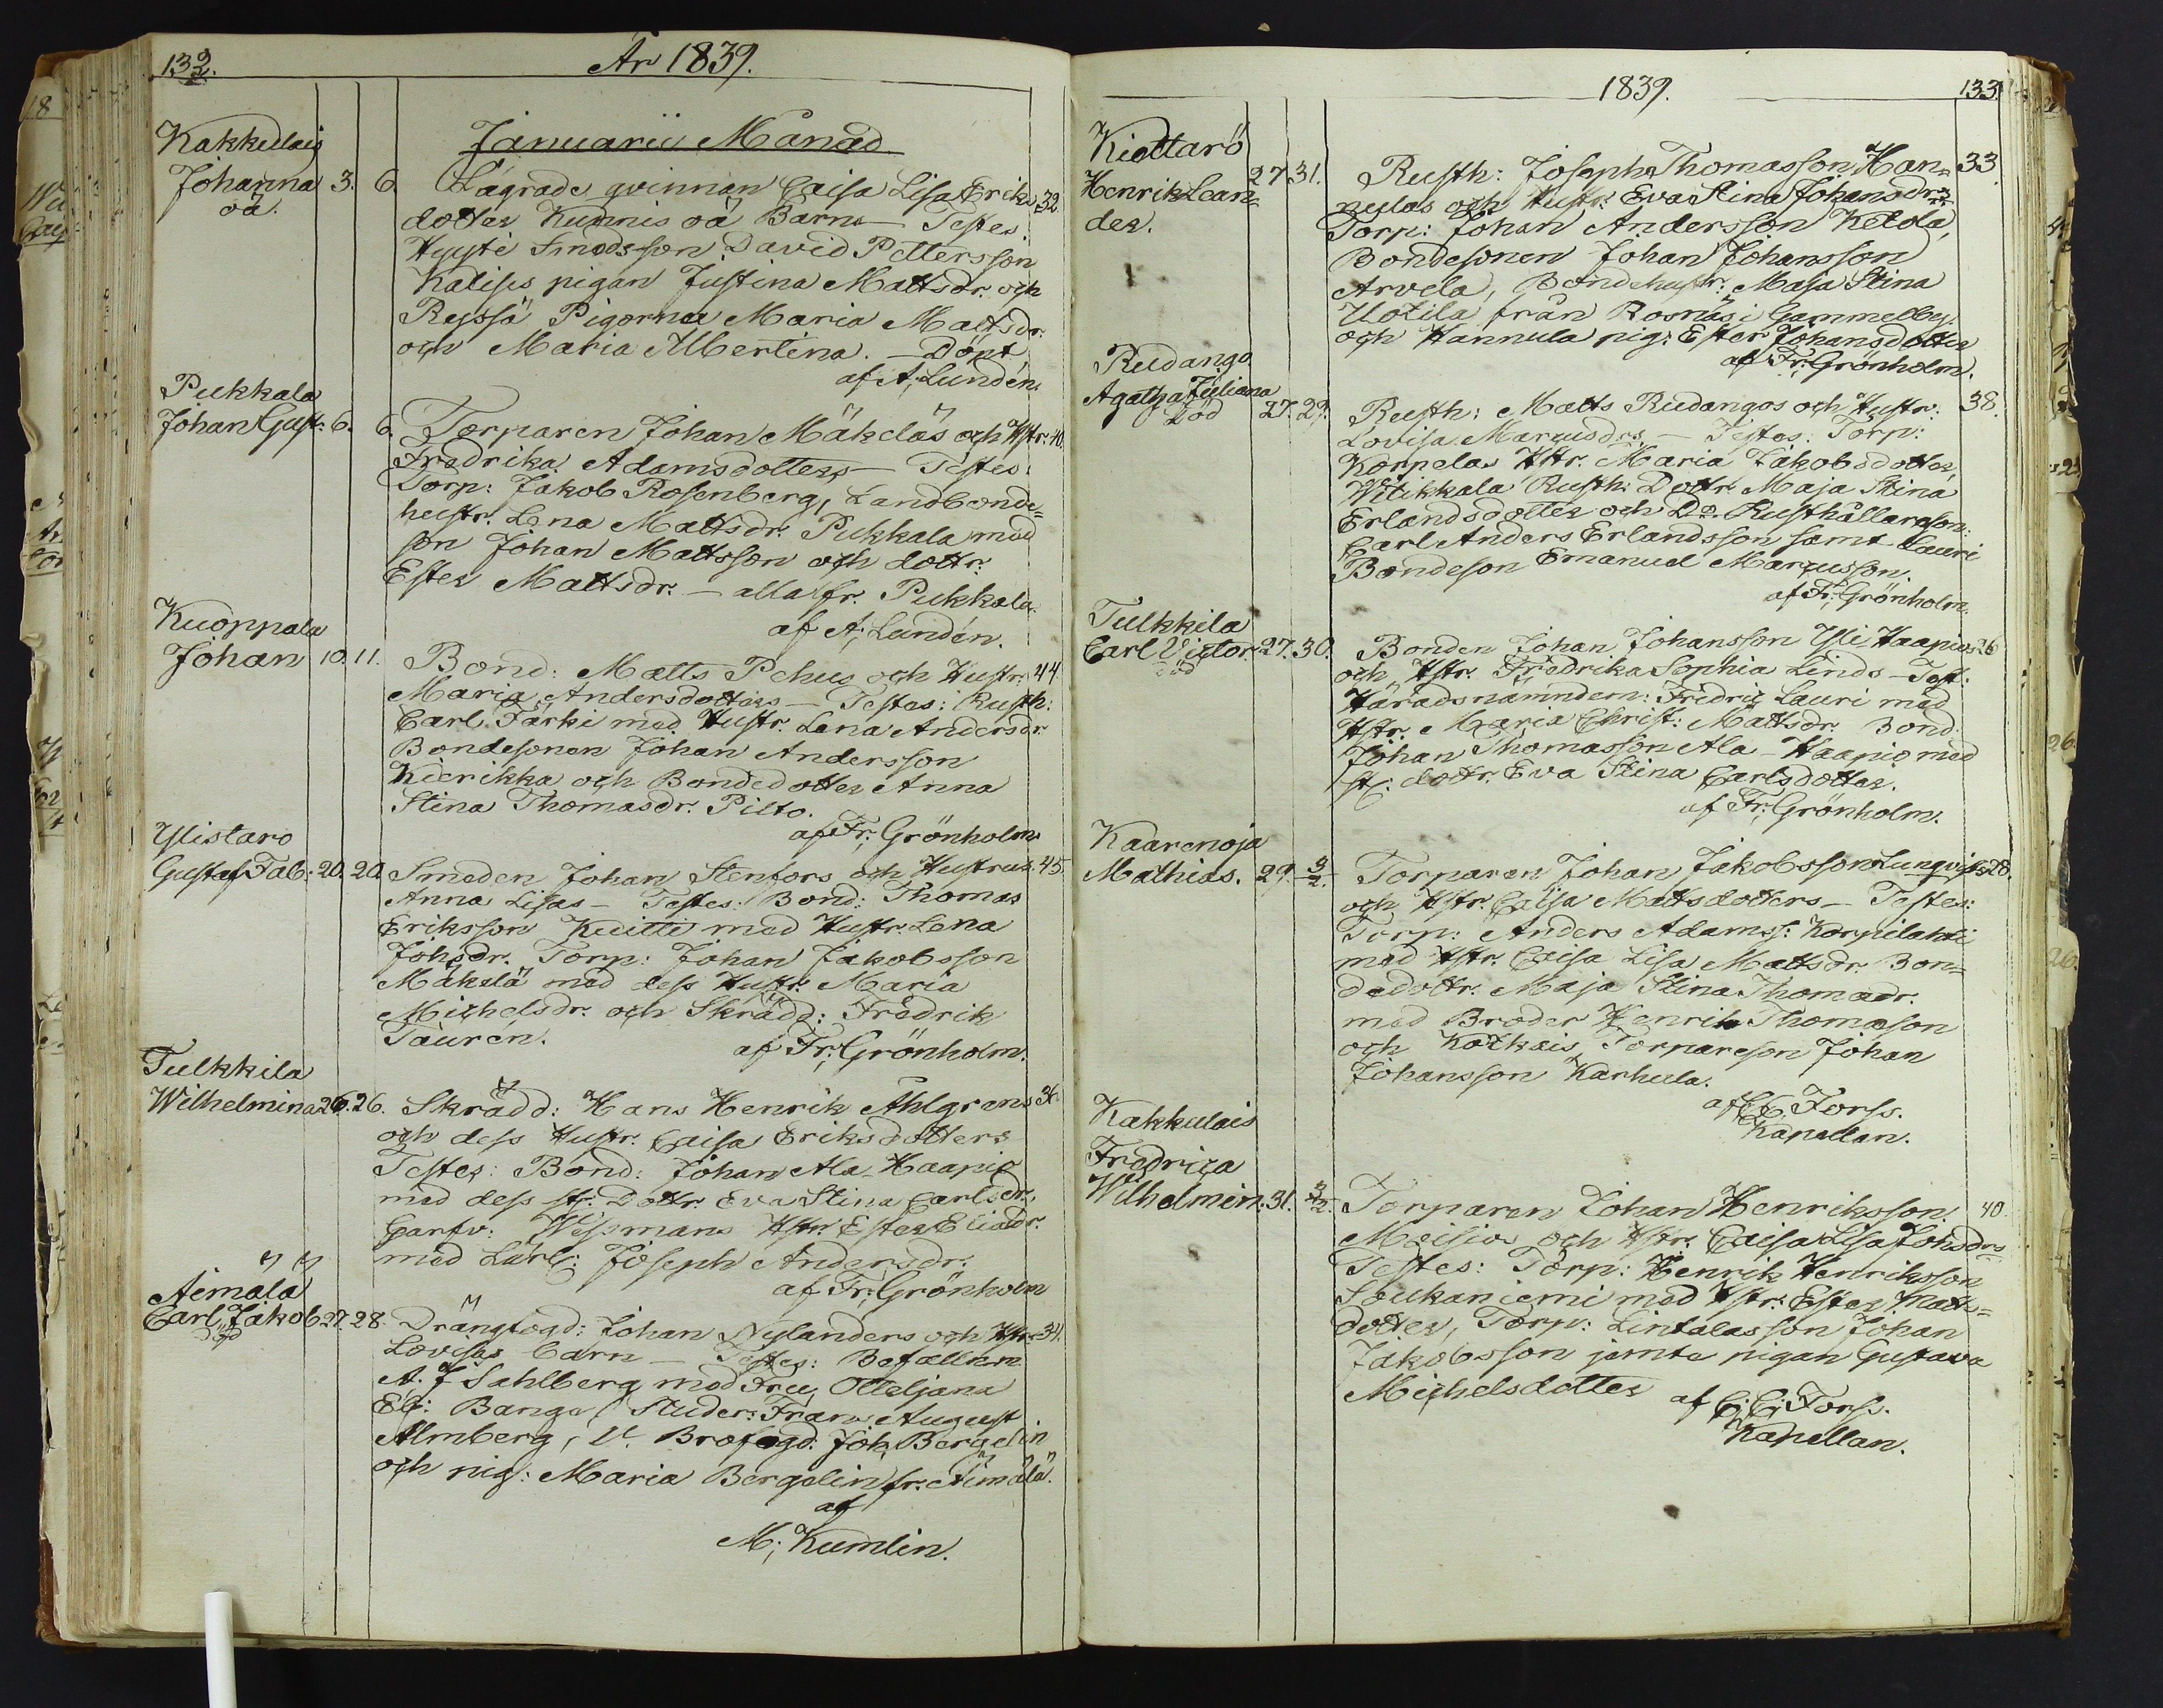 132.
År 1839.
Januarii Månad
Kakkulais
Johanna 3. 6. Lägrade qvinnan Caisa Lisa Eriks 32
oä.
dotter Kunnis oä Barn – Testes:
Hyysti Smedsson David Pettersson
Kalises pigan Justina Mattsdr. och
Ryssä Pigorna Maria Mattsdr.
och Maria Albertina. – Döpt
af A. Lundén.
Pukkala
Johan Gust: 6. 6. Torparen Johan Mäkeläs och Hstr: 40.
Fredrika Adamsdotters – Testes:
Torp: Jakob Rosenberg, Landbonde-
hustr. Lena Mattsdr. Pukkala med
son Johan Mattsson och dottr:
Ester Mattsdr. – alla fr. Pukkala
af A. Lundén.
Kuoppala
Johan 10. 11. Bond: Matts Pehus och Hustr: 44.
Maria Andersdotters – Testes: Rusth:
Carl Färki med Hustr. Lena Andersdr.
Bondesonen Johan Andersson
Kierikka och Bondedotter Anna
Stina Thomasdr. Pilto.
af Fr. Grönholm
Ylistaro
Gustaf Fab: 20. 20. Smeden Johan Stenfors och Hustrus 45.
Anna Lisas – Testes: Bond: Thomas
Eriksson Kuitti med Hustr. Lena
Johsdr. Torp: Johan Jakobsson
Mäkelä med dess Hustr. Maria
Michelsdr. och Skrädd: Fredrik
Taurén.
af Fr. Grönholm.
Tulkkila
Wilhelmina 26. 26. Skrädd: Hans Henrik Ahlgrens
och dess Hustr. Caisa Eriksdotters
Testes: Bond: Johan Ala-Haapio
med dess st: Dottr. Eva Stina Carlsdr.
Garfv: Wessmans Hstr. Ester Eliædr.
med Lärl: Joseph Andersdr.
af Fr. Grönholm
Äimälä
Carl Jakob 27. 28. Drängfogd: Johan Nylanders och Hstr. 34.
död
Lovisas barn – Testes: Befallnm
A. J Sahlberg med Fru Otteljana
El: Bange, Studer: Frans August
Almberg, V. Brofogd: Joh. Bergelin
och pig: Maria Bergelin fr. Äimälä.
af
M. Kumlin.
1839. 133.
Kiettarö
Henrik Lean- 27 31. Rusth: Joseph Thomasson Han- 33
der.
nulas och Hustr: Eva Stina Johansdrs
Torp: Johan Andersson Ketola,
Bondesonen Johan Johansson
Arvela, Bondehustr: Maja Stina
Uotila från Rosnäs i Gammelby
och Hannula pig: Ester Johansdotter
af Fr. Grönholm.
Rudango
Agatha Juliana 27. 29. Rusth: Matts Rudangos och Hustr: 38.
Död
Lovisa Marcusdrs. – Testes: Torp:
Korpelas Hstr. Maria Jakobsdotter
Witikkala Rusth: Dottr. Maja Stina
Erlandsdotter och Do. Rusthållareson:
Carl Anders Erlandsson samt Lauri
Bondeson Emanuel Marcusson.
af Fr. Grönholm.
Tulkkila
Carl Victor 27. 30. Bonden Johan Johansson Yli Haapios 26
död
och Hstr. Fredrika Sophia Linds – Test:
Häradsnämndem: Fredric Lauri med
Hstr. Maria Christ: Mattsdr. Bond:
Johan Thomasson Ala-Haapio med
st: dottr. Eva Stina Carlsdotter.
af Fr. Grönholm.
Kaarenoja
Mathias. 29. 3/2. Torparen Johan Jakobsson Lunqvists 28.
och Hstr. Caisa Mattsdotters – Testes:
Torp: Anders Adamss: Korpilahti
med Hstr. Caisa Lisa Mattsdr. Bon-
dedottr. Maja Stina Thomædr.
med Broder Henrik Thomæson
och Kakkais Torpareson Johan
Johansson Karhula.
af C. C. Forss.
Kapellan.
Kakkulais
Fredrica
Wilhelmin: 31. 3/2. Torparen Johan Henriksson 40.
Maisio och Hstr. Caisa Lisa Johsdrs
Testes: Torp: Henrik Henriksson
Soukaniemi med Hstr. Ester Matts-
dotter, Torp: Lintalasson Johan
Jakobsson jemte pigan Gustava
Michelsdotter
af C. C. Forss.
Kapellan.